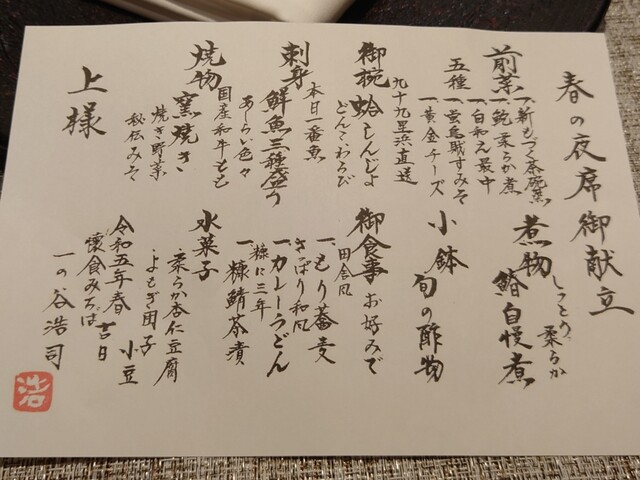 春の夜席御献立
前菜
五種
一、新もづく茶碗蒸
一、鮑柔らか煮
一、白和え最中
一、蛍烏賊すみそ
一、黄金チーズ
御椀
蛤しんじょ
九十九里浜直送
どんこ、わらび
刺身
本日一番魚
鮮魚三種盛り
あしらい色々
焼物
国産和牛もも
窯焼き
焼き野菜
秘伝みそ
上様
煮物
しっとり、柔らか
鰆自慢煮
小鉢
旬の酢物
御食事
お好みで
田舎風
一、もり蕎麦
さっぱり和風
一、カレーうどん
糠に三年
一、糠鯖茶漬
水菓子
柔らか杏仁豆腐
よもぎ団子
小豆
令和五年春吉日
懐食みちば
一の谷浩司
浩